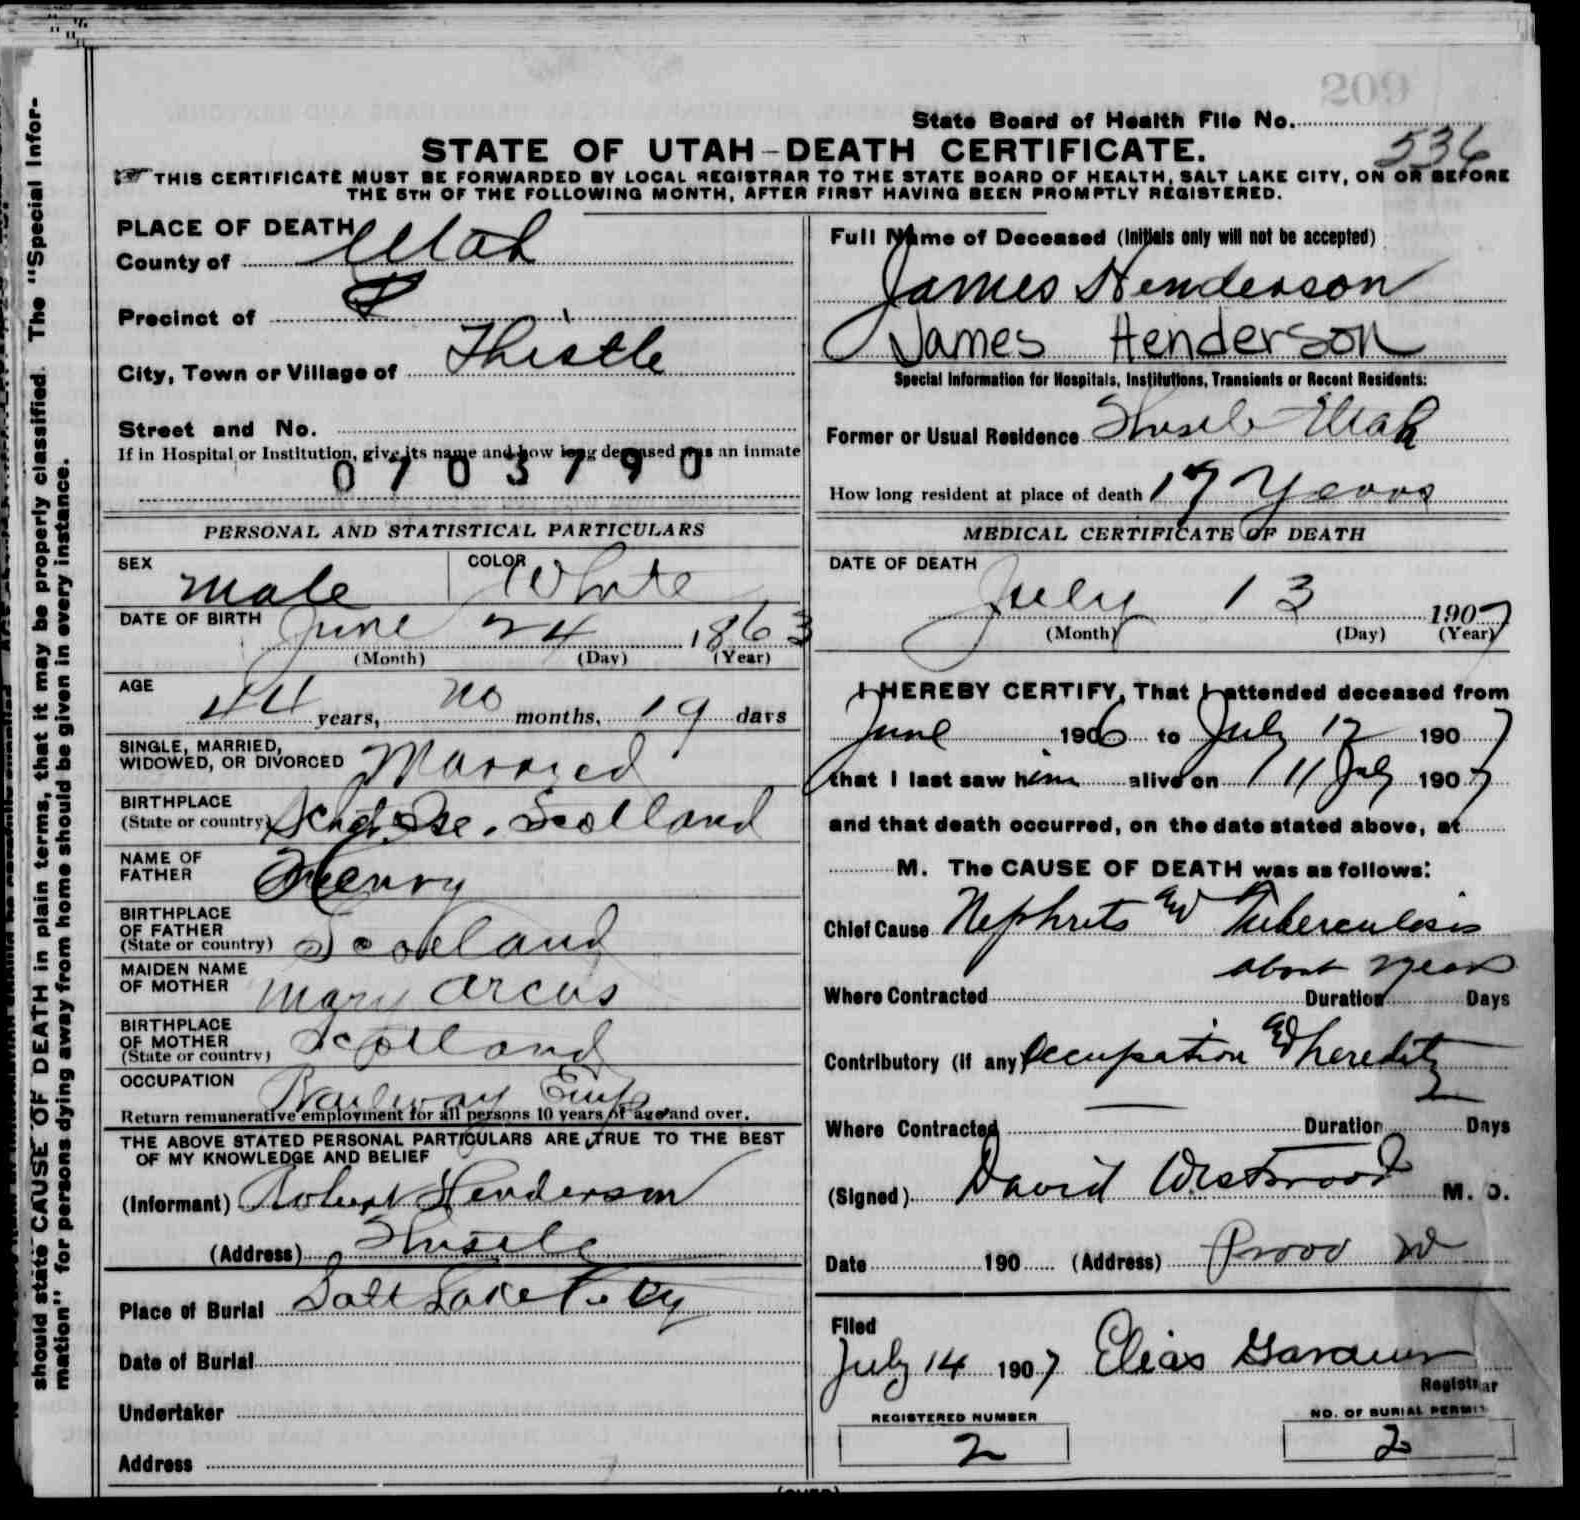 209
State Board of Health File No.
536
STATE OF UTAH—DEATH CERTIFICATE.
THIS CERTIFICATE MUST BE FORWARDED BY LOCAL REGISTRAR TO THE STATE BOARD OF HEALTH, SALT LAKE CITY, ON OR BEFORE
THE 5TH OF THE FOLLOWING MONTH, AFTER FIRST HAVING BEEN PROMPTLY REGISTERED.
should state CAUSE OF DEATH in plain terms, that it may be properly classified. The "Special Infor-
mation" for persons dying away from home should be given in every instance.
PLACE OF DEATH
County of Utah
Precinct of
City, Town or Village of Thistle
Street and No.
If in Hospital or Institution, give its name and how long deceased was an inmate
0703790
PERSONAL AND STATISTICAL PARTICULARS
SEX Male COLOR White
DATE OF BIRTH June 24 1863
(Month) (Day) (Year)
AGE
44 years, no months, 19 days
SINGLE, MARRIED,
WIDOWED, OR DIVORCED Married
BIRTHPLACE
(State or country) Scotland
NAME OF
FATHER Henry
BIRTHPLACE
OF FATHER
(State or country) Scotland
MAIDEN NAME
OF MOTHER Mary Arcus
BIRTHPLACE
OF MOTHER
(State or country) Scotland
OCCUPATION Railway Emp
Return remunerative employment for all persons 10 years of age and over.
THE ABOVE STATED PERSONAL PARTICULARS ARE TRUE TO THE BEST
OF MY KNOWLEDGE AND BELIEF
(Informant) Robert Henderson
(Address) Thistle
Place of Burial Salt Lake City
Date of Burial
Undertaker
Address
Full Name of Deceased (Initials only will not be accepted)
James Henderson
James Henderson
Special Information for Hospitals, Institutions, Transients or Recent Residents:
Former or Usual Residence Thistle Utah
How long resident at place of death 17 Years
MEDICAL CERTIFICATE OF DEATH
DATE OF DEATH
July 13 1907
(Month) (Day) (Year)
I HEREBY CERTIFY, That I attended deceased from
June 1906 to July 12 1907
that I last saw him alive on 11 July 1907
and that death occurred, on the date stated above, at
M. The CAUSE OF DEATH was as follows:
Chief Cause Nephrits and Tuberculosis
about year
Where Contracted Duration Days
Contributory (if any) Occupation and heredity
Where Contracted Duration Days
(Signed) David Westwood M. D.
Date 190 (Address) Provo
Filed
July 14 1907 Elias Gardner
Registrar
REGISTERED NUMBER
2
NO. OF BURIAL PERMIT
2
(OVER)